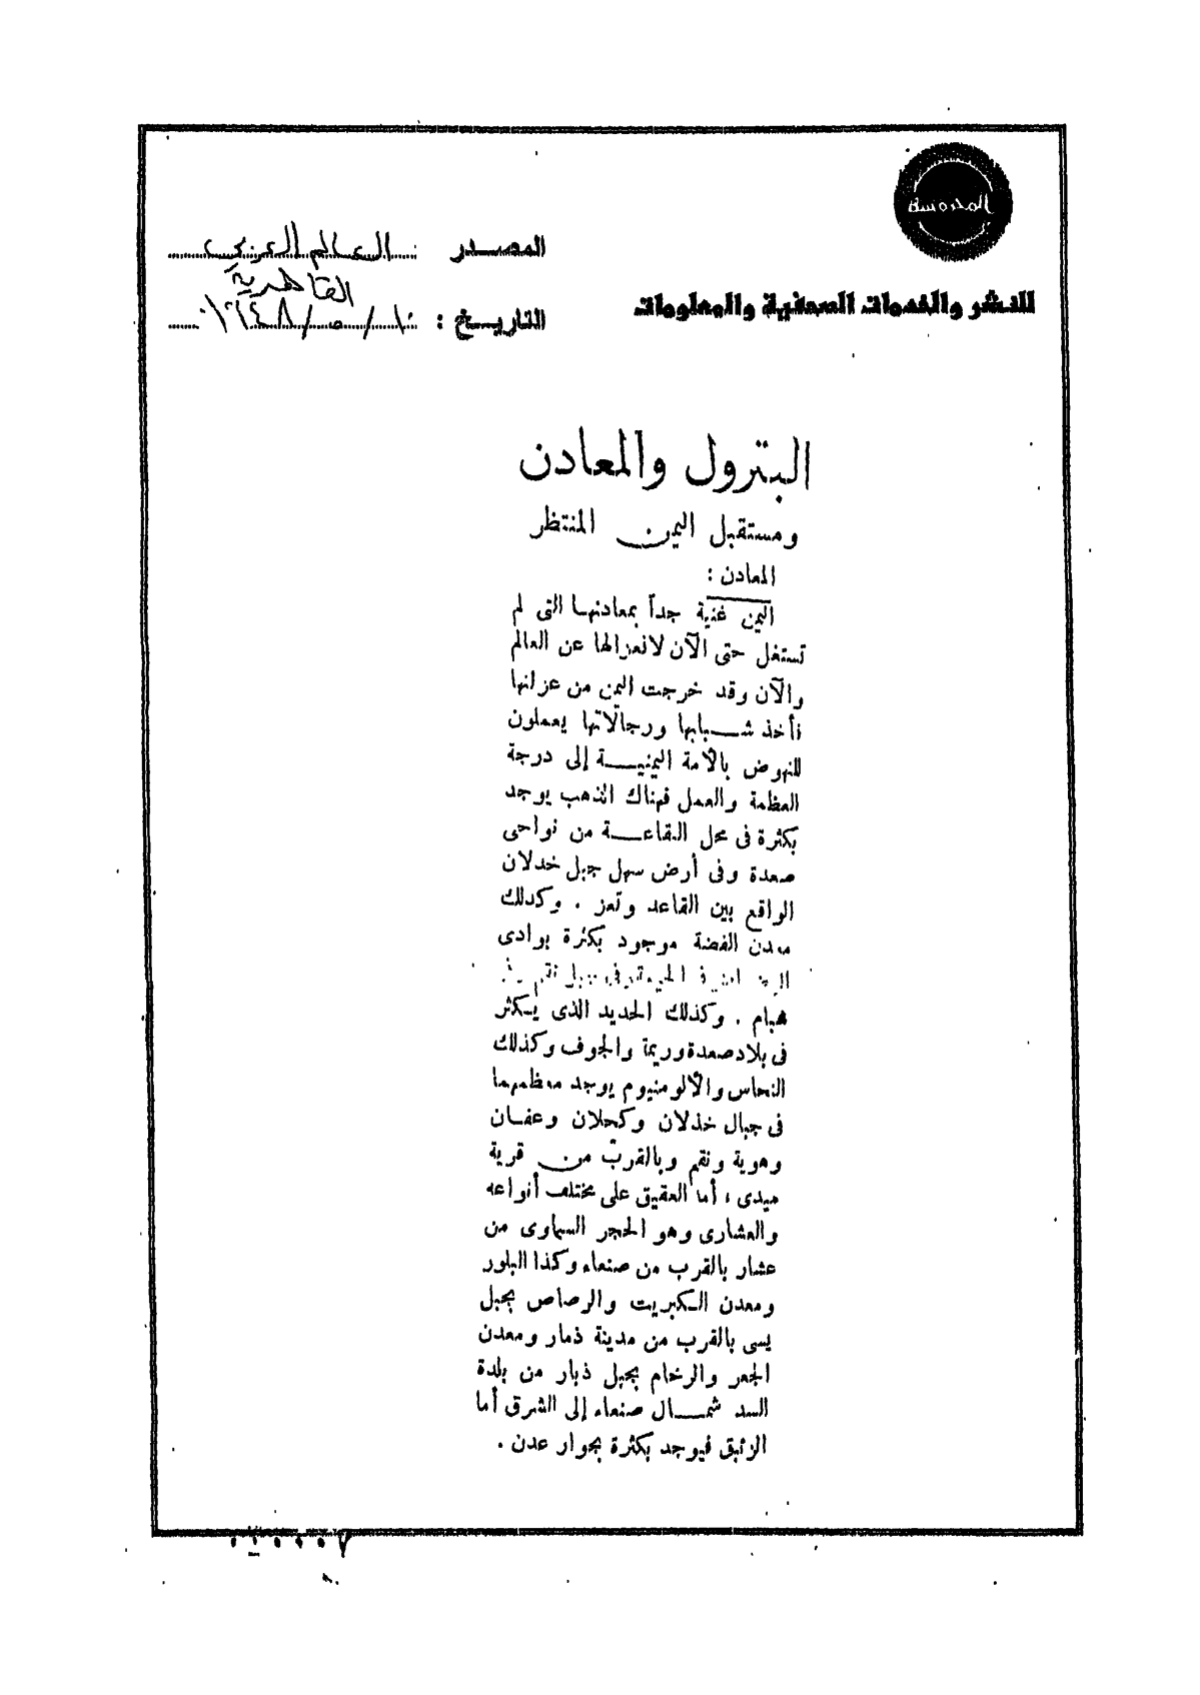 المحروسة
للنشر والخدمات الصحفية والمعلومات
المصدر : العالم العربي
القاهرية
التاريخ : ١٠ / ٥ / ١٩٤٨
البترول والمعادن
ومستقبل اليمن المنتظر
المعادن :
اليمن غنية جداً بمعادنها التى لم
تستغل حتى الآن لانعزالها عن العالم
والآن وقد خرجت اليمن من عزلتها
فأخذ شبابها ورجالاتها يعملون
للنهوض بالأمة اليمنية إلى درجة
العظمة والعمل فهناك الذهب يوجد
بكثرة فى محل القاعة من نواحى
صعدة وفى أرض سهل جبل خدلان
الواقع بين القاعد وتعز . وكذلك
معدن الفضة موجود بكثرة بوادى
شبام . وكذلك الحديد الذى يكثر
فى بلاد صعدة وريمة والجوف وكذلك
النحاس والألومنيوم يوجد معظمهما
فى جبال خذلان وكحلان وعفان
وهوية ونقم وبالقرب من قرية
ميدى ، أما العقيق على مختلف أنواعه
والعشارى وهو الحجر السماوى من
عشار بالقرب من صنعاء وكذا البلور
ومعدن الكبريت والرصاص بجبل
يسى بالقرب من مدينة ذمار ومعدن
الجعر والرخام بجبل ذبار من بلدة
السد شمال صنعاء إلى الشرق أما
الزئبق فيوجد بكثرة بجوار عدن .